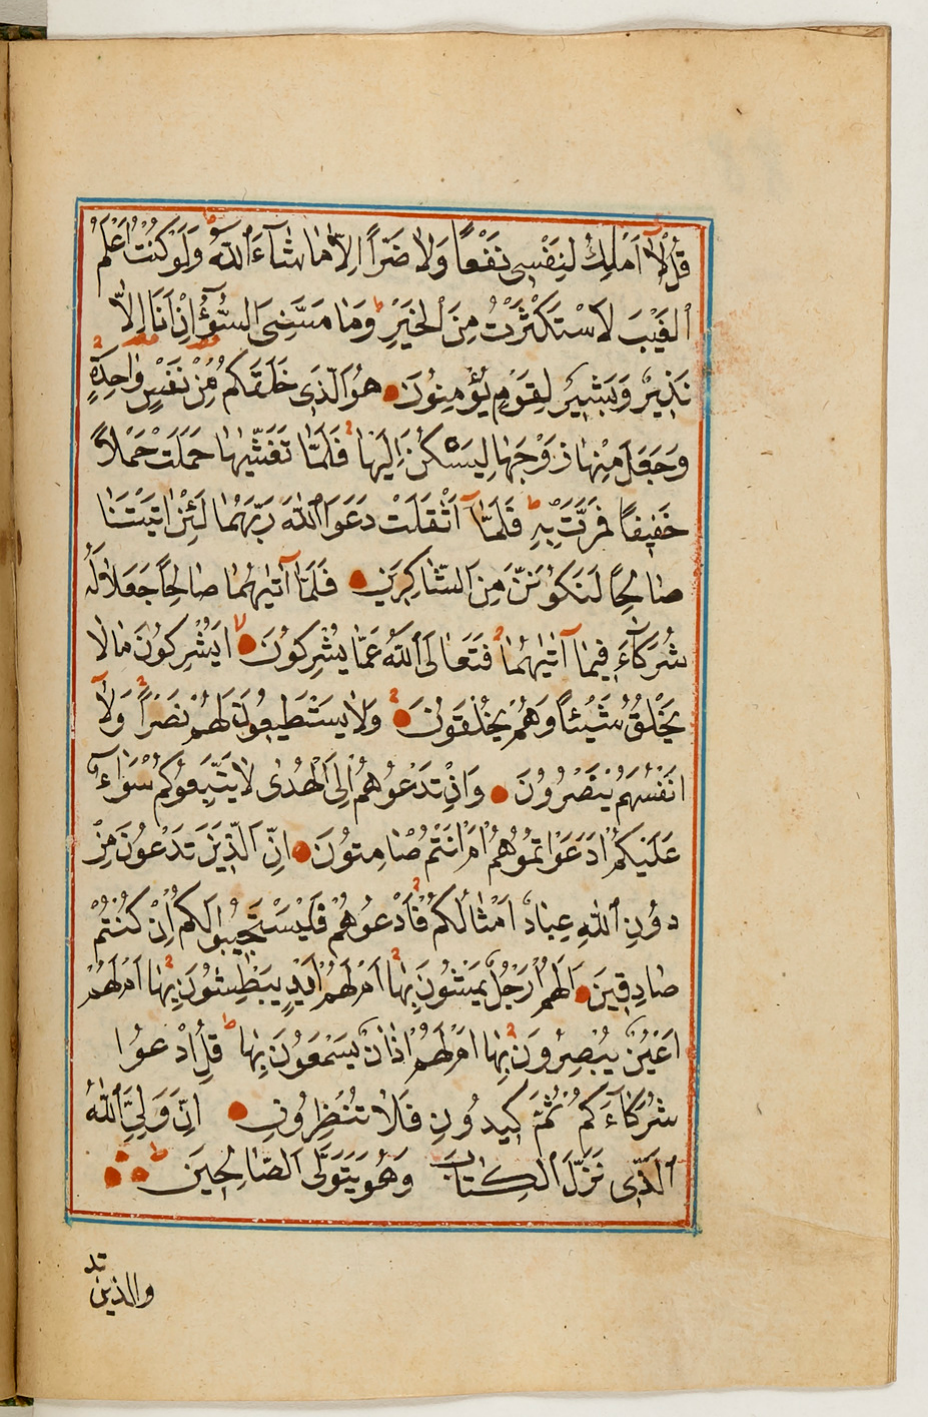 قُلْ لَٓا اَمْلِكُ لِنَفْسِى نَفْعًا وَلَا ضَرًّا اِلَّا مَا شَٓاءَ اللّٰهُ وَلَوْ كُنْتُ اَعْلَمُ
الْغَيْبَ لَاسْتَكْثَرْتُ مِنَ الْخَيْرِ وَمَا مَسَّنِىَ السُّٓوءُ اِنْ اَنَا اِلَّا
نَذِيرٌ وَبَشِيرٌ لِقَوْمٍ يُؤْمِنُونَ هُوَ الَّذِى خَلَقَكُمْ مِنْ نَفْسٍ وَاحِدَةٍ
وَجَعَلَ مِنْهَا زَوْجَهَا لِيَسْكُنَ اِلَيْهَا فَلَمَّا تَغَشّٰيهَا حَمَلَتْ حَمْلًا
خَفِيفًا فَمَرَّتْ بِهِ فَلَمَّٓا اَثْقَلَتْ دَعَوَا اللّٰهَ رَبَّهُمَا لَئِنْ اٰتَيْتَنَا
صَالِحًا لَنَكُونَنَّ مِنَ الشَّاكِرِينَ فَلَمَّٓا اٰتٰيهُمَا صَالِحًا جَعَلَا لَهُ
شُرَكَٓاءَ فِيمَٓا اٰتٰيهُمَا فَتَعَالَى اللّٰهُ عَمَّا يُشْرِكُونَ اَيُشْرِكُونَ مَا لَا
يَخْلُقُ شَيْئًا وَهُمْ يُخْلَقُونَ وَلَا يَسْتَطِيعُونَ لَهُمْ نَصْرًا وَلَٓا
اَنْفُسَهُمْ يَنْصُرُونَ وَاِنْ تَدْعُوهُمْ اِلَى الْهُدٰى لَا يَتَّبِعُوكُمْ سَوَٓاءٌ
عَلَيْكُمْ اَدَعَوْتُمُوهُمْ اَمْ اَنْتُمْ صَامِتُونَ اِنَّ الَّذِينَ تَدْعُونَ مِنْ
دُونِ اللّٰهِ عِبَادٌ اَمْثَالُكُمْ فَادْعُوهُمْ فَلْيَسْتَجِيبُوا لَكُمْ اِنْ كُنْتُمْ
صَادِقِينَ اَلَهُمْ اَرْجُلٌ يَمْشُونَ بِهَا اَمْ لَهُمْ اَيْدٍ يَبْطِشُونَ بِهَا اَمْ لَهُمْ
اَعْيُنٌ يُبْصِرُونَ بِهَا اَمْ لَهُمْ اٰذَانٌ يَسْمَعُونَ بِهَا قُلِ ادْعُوا
شُرَكَٓاءَكُمْ ثُمَّ كِيدُونِ فَلَا تُنْظِرُونِ اِنَّ وَلِيِّىَ اللّٰهُ
الَّذِى نَزَّلَ الْكِتَابَ وَهُوَ يَتَوَلَّى الصَّالِحِينَ
والذين تد